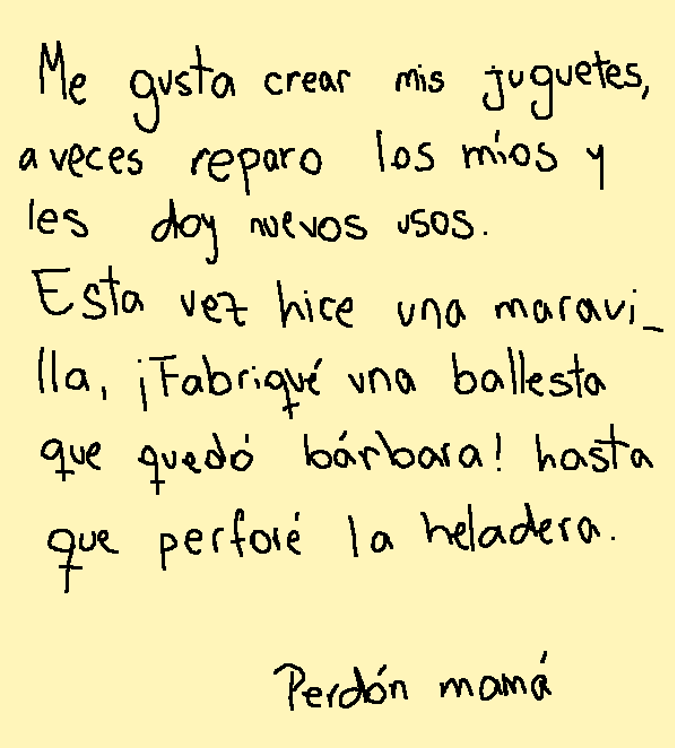 Me gusta crear mis juguetes,
a veces reparo los míos y
les doy nuevos usos.
Esta vez hice una maravi_
lla, ¡Fabriqué una ballesta
que quedó bárbara! hasta
que perforé la heladera.
Perdón mamá